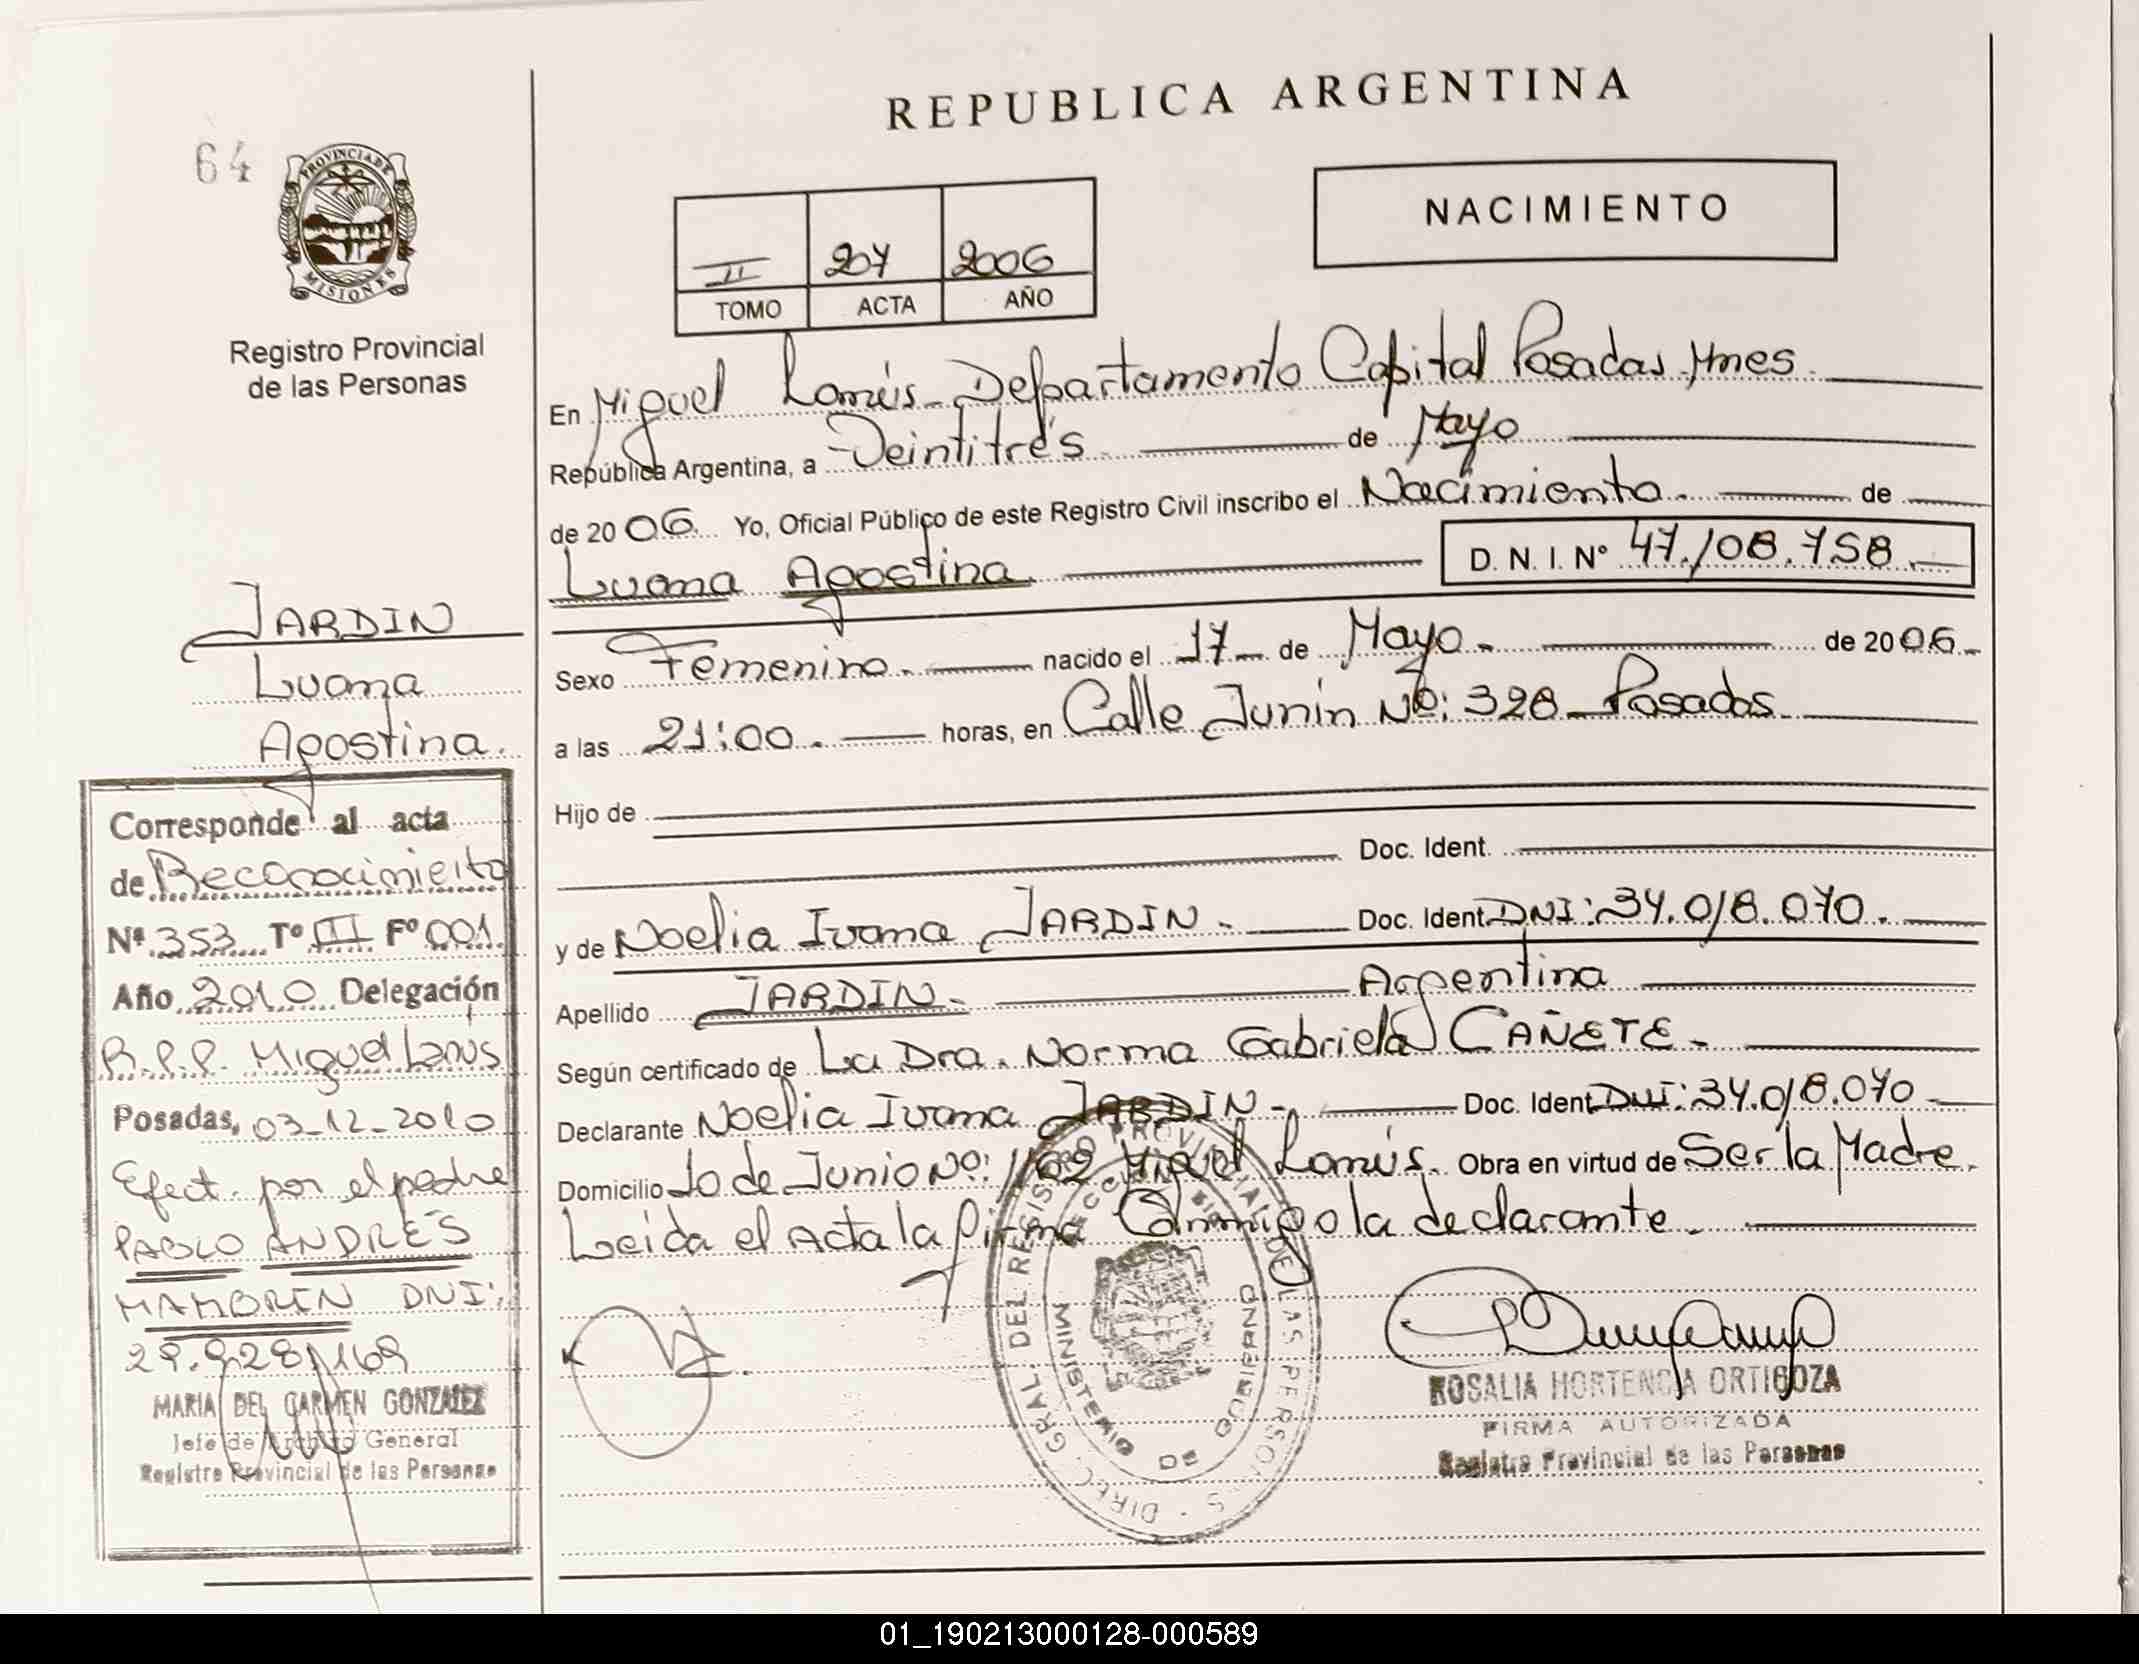 64
PROVINCIA DE
MISIONES
Registro Provincial
de las Personas
JARDIN
Luana
Agostina.
Corresponde al acta
de Reconocimiento
Nº 353 Tº III Fº 001
Año 2010 Delegación
R.P.P. Miguel Lanús
Posadas, 03-12-2010
Efect. por el padre
PABLO ANDRÉS
MAMBRIN DNI:
29.928.169
MARIA DEL CARMEN GONZALEZ
Jefe de Archivo General
Registro Provincial de las Personas
REPUBLICA ARGENTINA
NACIMIENTO
II 207 2006
TOMO ACTA AÑO
En Miguel Lanús - Departamento Capital Posadas Mnes.
República Argentina, a Veintitrés de Mayo
de 2006. Yo, Oficial Público de este Registro Civil inscribo el Nacimiento. de
Luana Agostina. D. N. I. Nº 47.108.758
Sexo Femenino. nacido el 17 de Mayo - de 2006
a las 21:00. horas, en Calle Junín Nº: 328 - Posadas
Hijo de
Doc. Ident.
y de Noelia Ivana JARDIN - Doc. Ident. DNI: 34.018.070.
Apellido JARDIN - Argentina
Según certificado de La Dra. Norma Gabriela CAÑETE -
Declarante Noelia Ivana JARDIN - Doc. Ident. DNI: 34.018.070
Domicilio 10 de Junio Nº: 1102 Miguel Lanús. Obra en virtud de Ser la Madre.
Leída el Acta la firma Conmigo la declarante.
DIREC. GRAL. DEL REGISTRO PROVINCIAL DE LAS PERSONAS
MINISTERIO DE GOBIERNO
ROSALIA HORTENCIA ORTIGOZA
FIRMA AUTORIZADA
Registro Provincial de las Personas
01_190213000128-000589